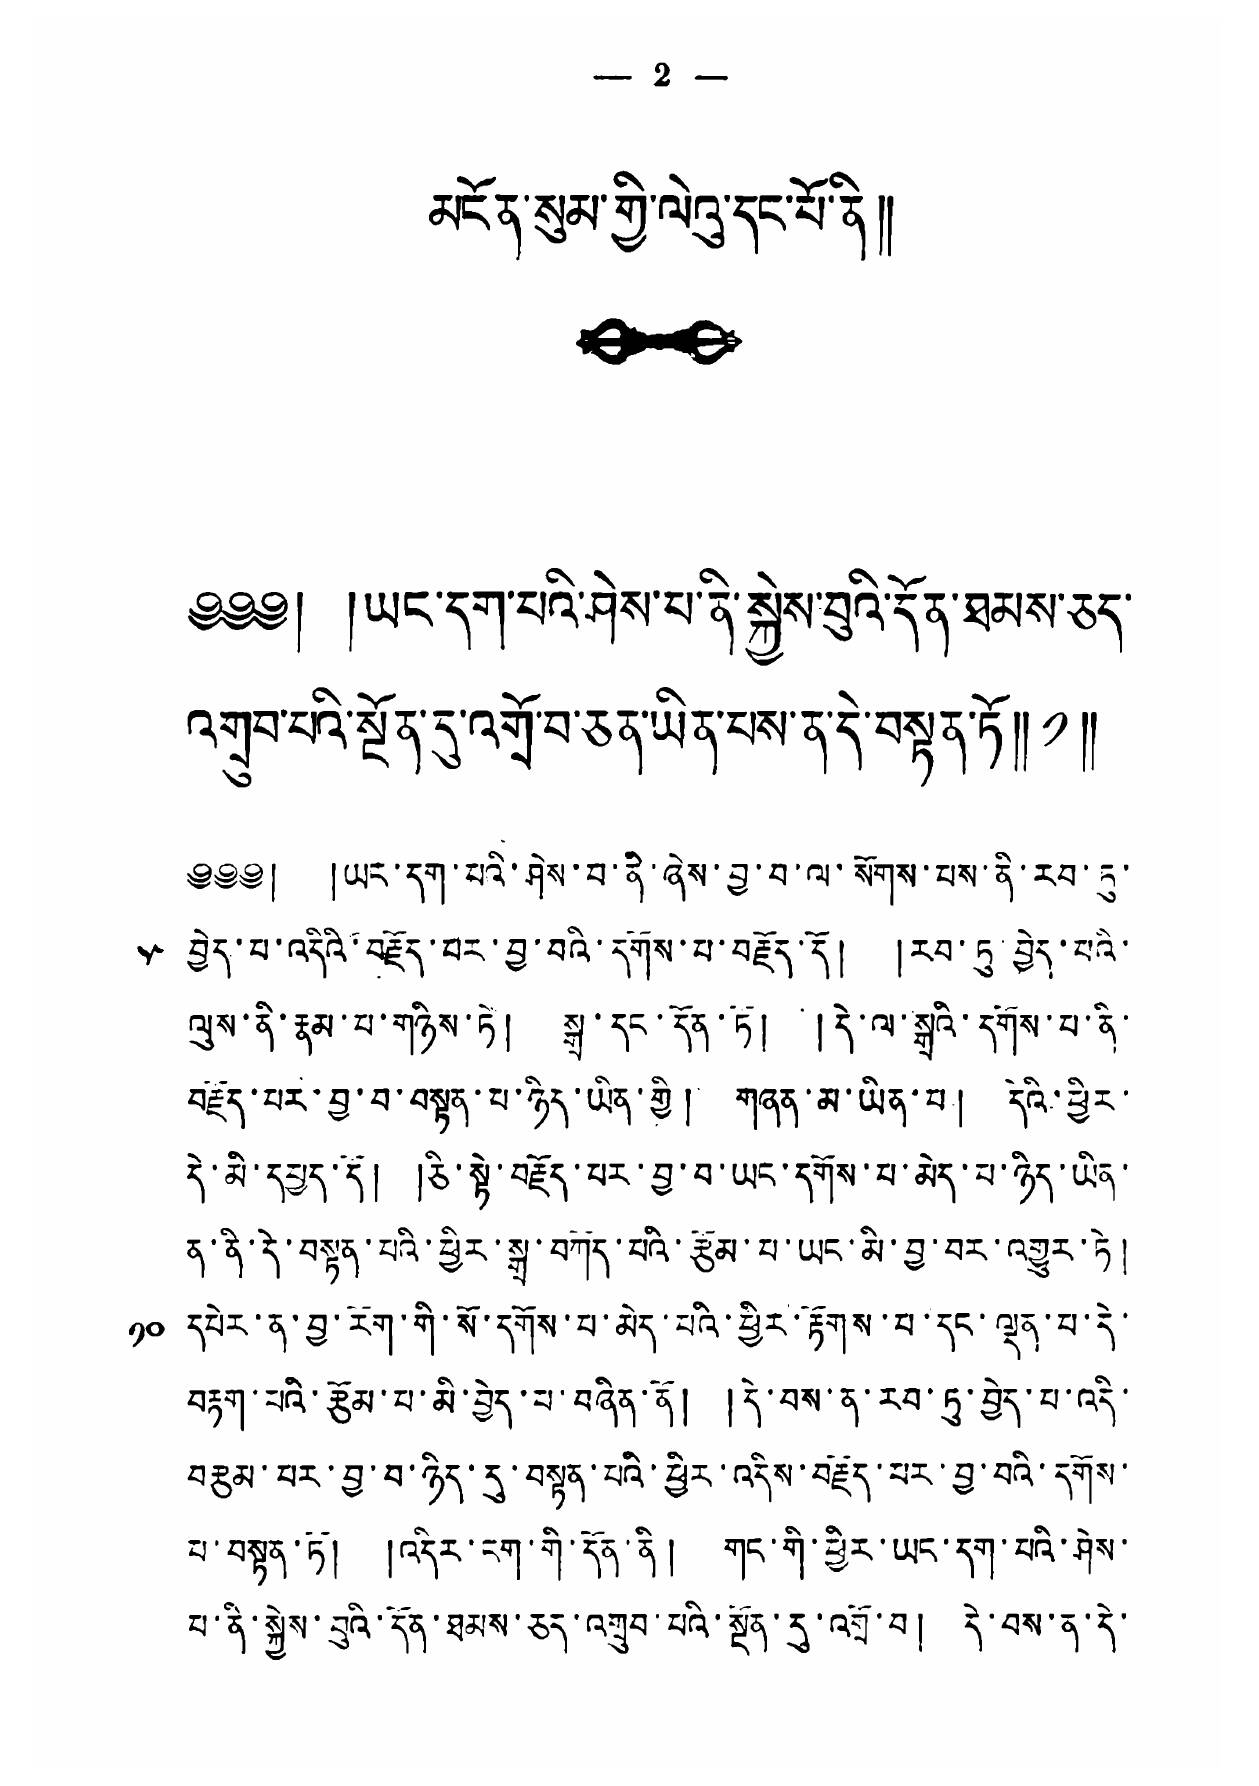 — 2 —
མངོན་སུམ་གྱི་ལེའུ་དང་པོ་ནི༎
༄༅༅། །ཡང་དག་པའི་ཤེས་པ་ནི་སྐྱེས་བུའི་དོན་ཐམས་ཅད་
འགྲུབ་པའི་སྔོན་དུ་འགྲོ་བ་ཅན་ཡིན་པས་ན་དེ་བསྟན་ཏོ༎ ༡ ༎
༄༅༅། །ཡང་དག་པའི་ཤེས་པ་ནི་ཞེས་བྱ་བ་ལ་སོགས་པས་ནི་རབ་ཏུ་
༥ བྱེད་པ་འདིའི་བརྗོད་པར་བྱ་བའི་དགོས་པ་བརྗོད་དོ། །རབ་ཏུ་བྱེད་པའི་
ལུས་ནི་རྣམ་པ་གཉིས་ཏེ། སྒྲ་དང་དོན་ཏོ། །དེ་ལ་སྒྲའི་དགོས་པ་ནི་
བརྗོད་པར་བྱ་བ་བསྟན་པ་ཉིད་ཡིན་གྱི། གཞན་མ་ཡིན་པ། དེའི་ཕྱིར་
དེ་མི་དཔྱད་དོ། །ཅི་སྟེ་བརྗོད་པར་བྱ་བ་ཡང་དགོས་པ་མེད་པ་ཉིད་ཡིན་
ན་ནི་དེ་བསྟན་པའི་ཕྱིར་སྒྲ་བཀོད་པའི་རྩོམ་པ་ཡང་མི་བྱ་བར་འགྱུར་ཏེ།
༡༠ དཔེར་ན་བྱ་རོག་གི་སོ་དགོས་པ་མེད་པའི་ཕྱིར་རྟོགས་པ་དང་ལྡན་པ་དེ་
བརྟག་པའི་རྩོམ་པ་མི་བྱེད་པ་བཞིན་ནོ། །དེ་བས་ན་རབ་ཏུ་བྱེད་པ་འདི་
བརྩམ་པར་བྱ་བ་ཉིད་དུ་བསྟན་པའི་ཕྱིར་འདིས་བརྗོད་པར་བྱ་བའི་དགོས་
པ་བསྟན་ཏོ། །འདིར་ངག་གི་དོན་ནི། གང་གི་ཕྱིར་ཡང་དག་པའི་ཤེས་
པ་ནི་སྐྱེས་བུའི་དོན་ཐམས་ཅད་འགྲུབ་པའི་སྔོན་དུ་འགྲོ་བ། དེ་བས་ན་དེ་